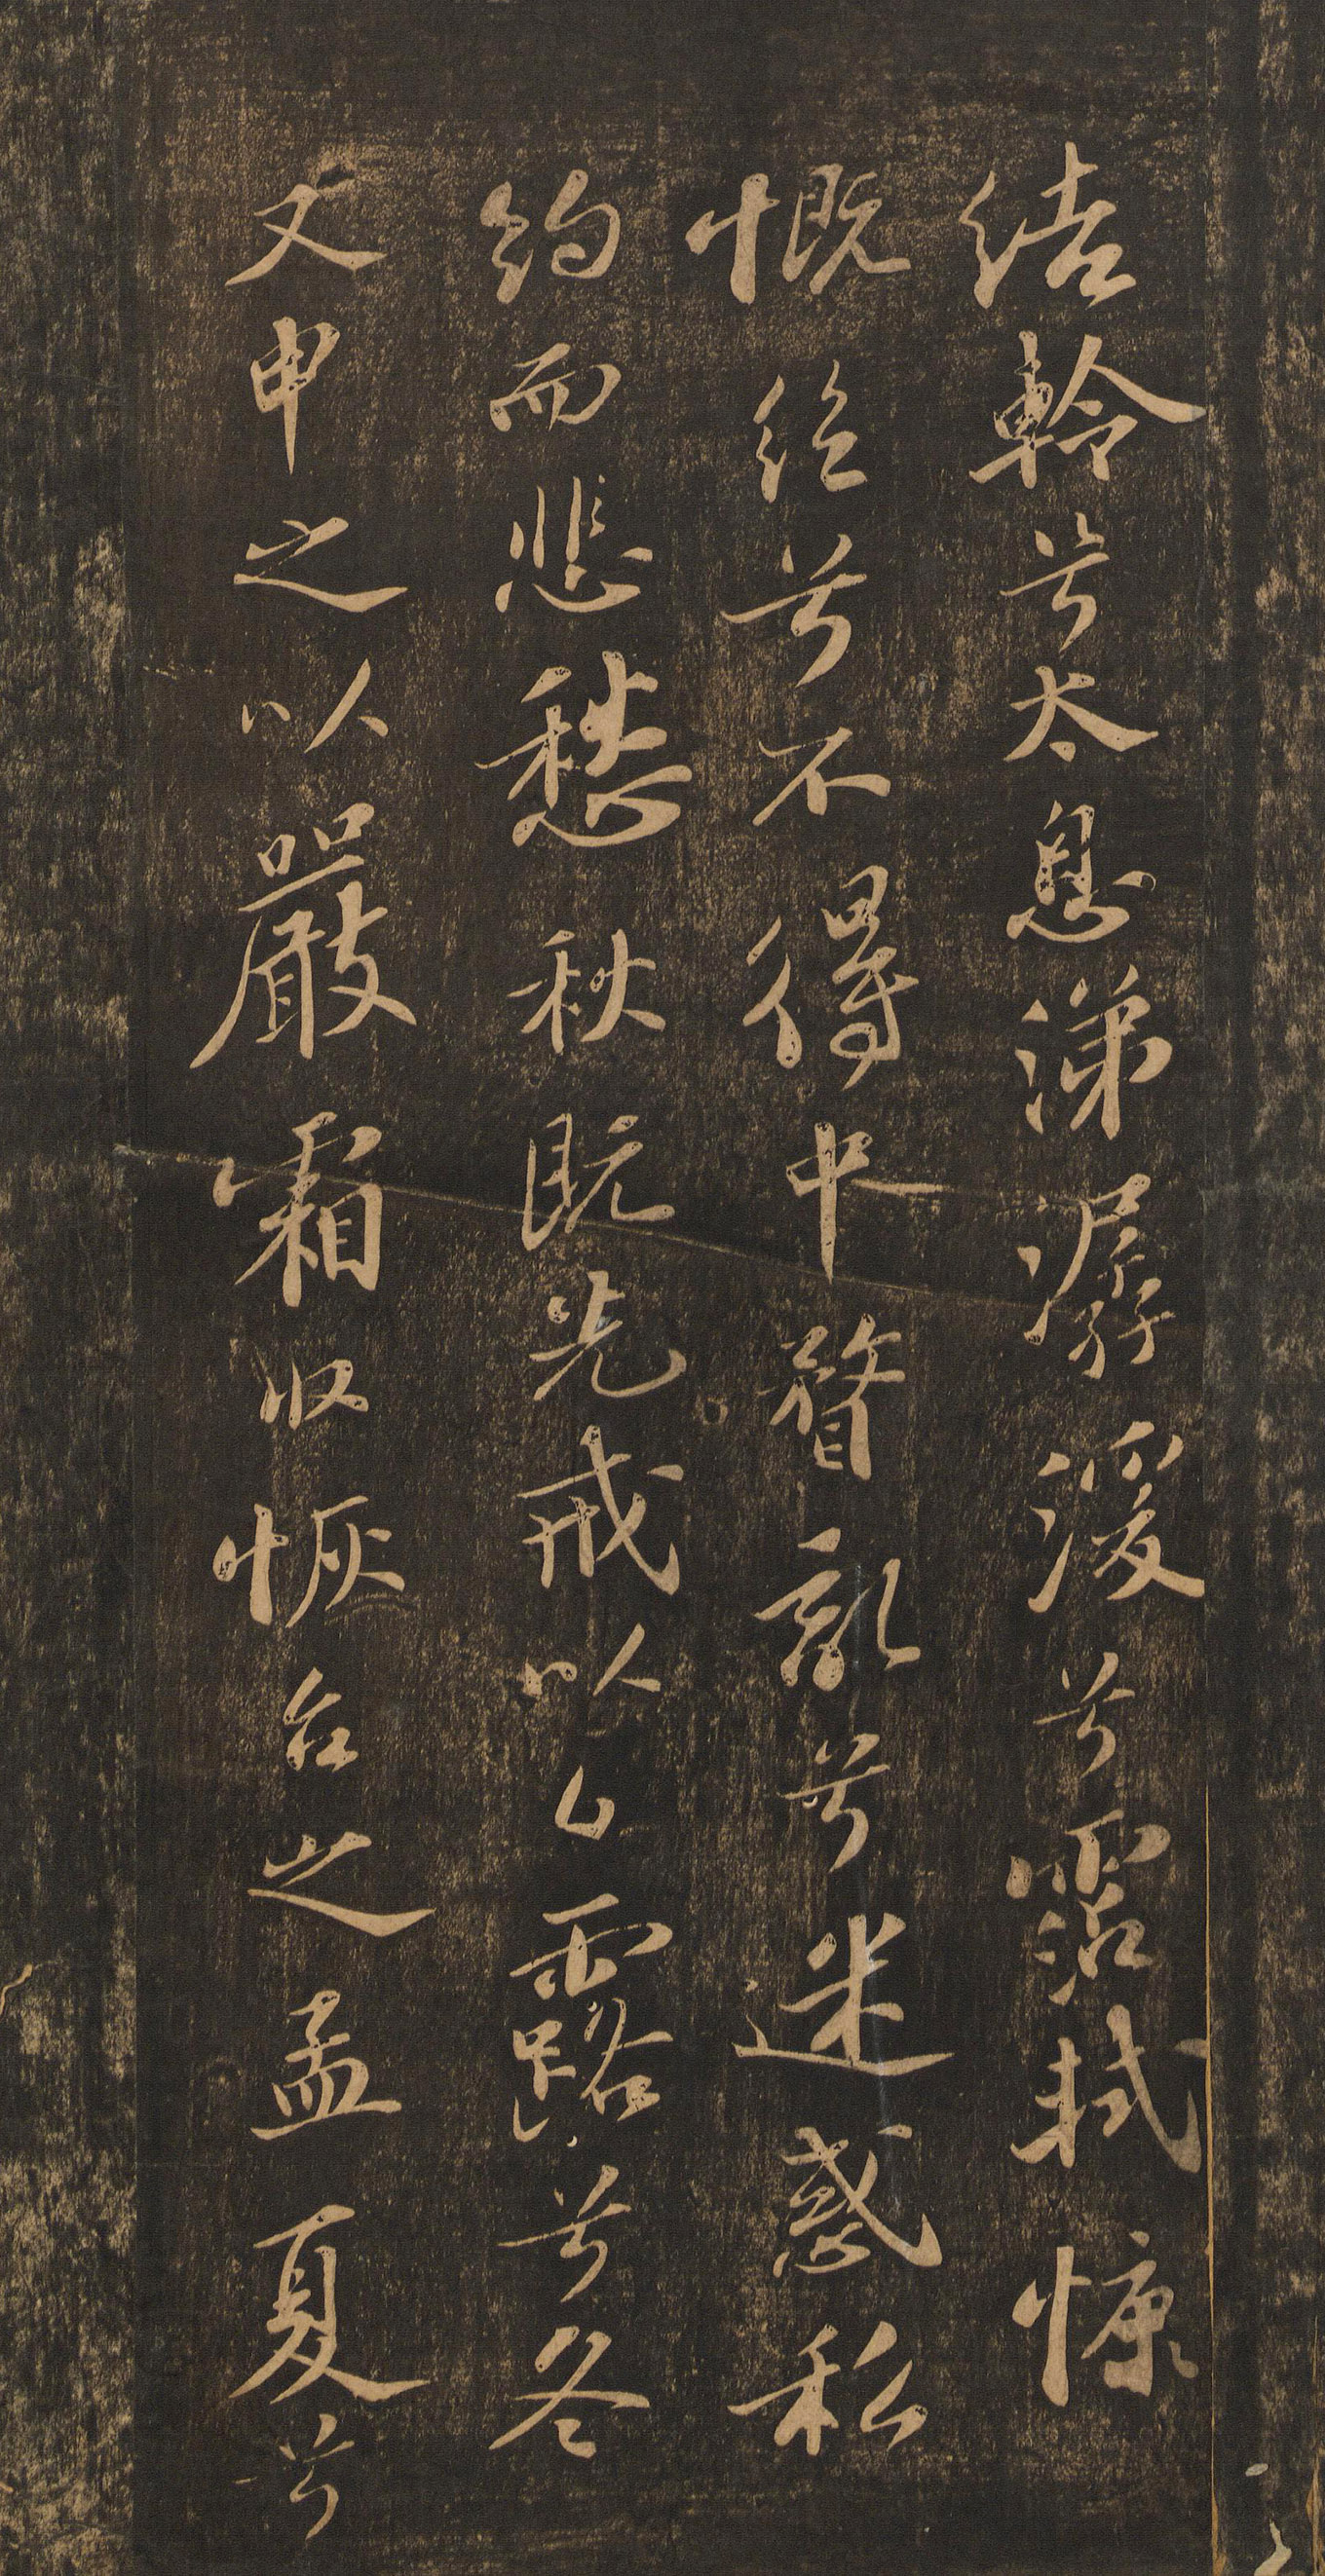 結軨兮太息涕潺湲兮霑軾慷
慨絕兮不得中瞀亂兮迷惑私
約而悲愁秋既先戒以白露兮冬
又申之以嚴霜收恢台之孟夏兮